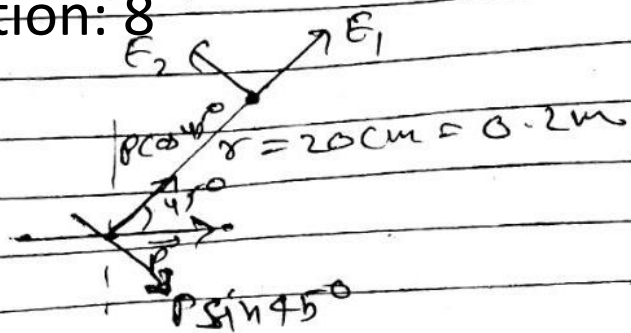 tion: 8
E₂ E₁
Pcos 45° r = 20cm = 0.2m
45°
P⃗
P sin 45°